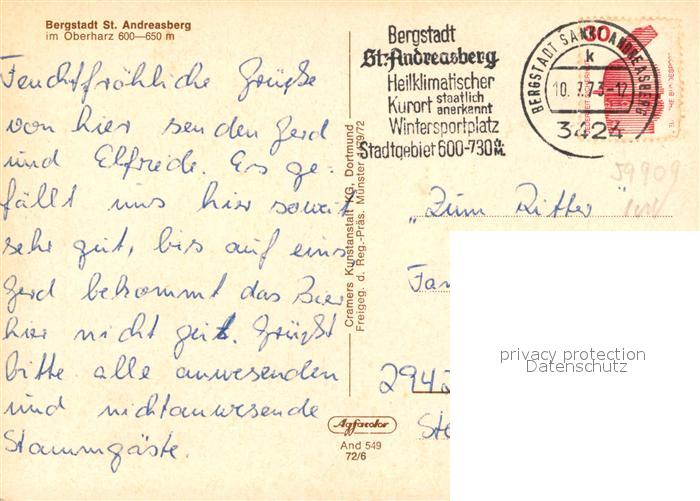 Bergstadt St. Andreasberg
im Oberharz 600—650 m
Feuchtfröhliche Grüße
von hier senden Gerd
und Elfriede. Es ge-
fällt uns hier soweit
sehr gut, bis auf eins
Gerd bekommt das Bier
hier nicht gut. Grüßt
bitte alle anwesenden
und nichtanwesende
Stammgäste.
Cramers Kunstanstalt KG, Dortmund
Freigeg. d. Reg.-Präs. Münster
Agfacolor
And 549
72/6
Bergstadt
St. Andreasberg
Heilklimatischer
Kurort staatlich anerkannt
Wintersportplatz
Stadtgebiet 600-730 ü. M.
BERGSTADT SANKT ANDREASBERG
k
10.7.73-17
3424
30
59909
„Zum Ritter"
Fam
2942
Ste
privacy protection
Datenschutz